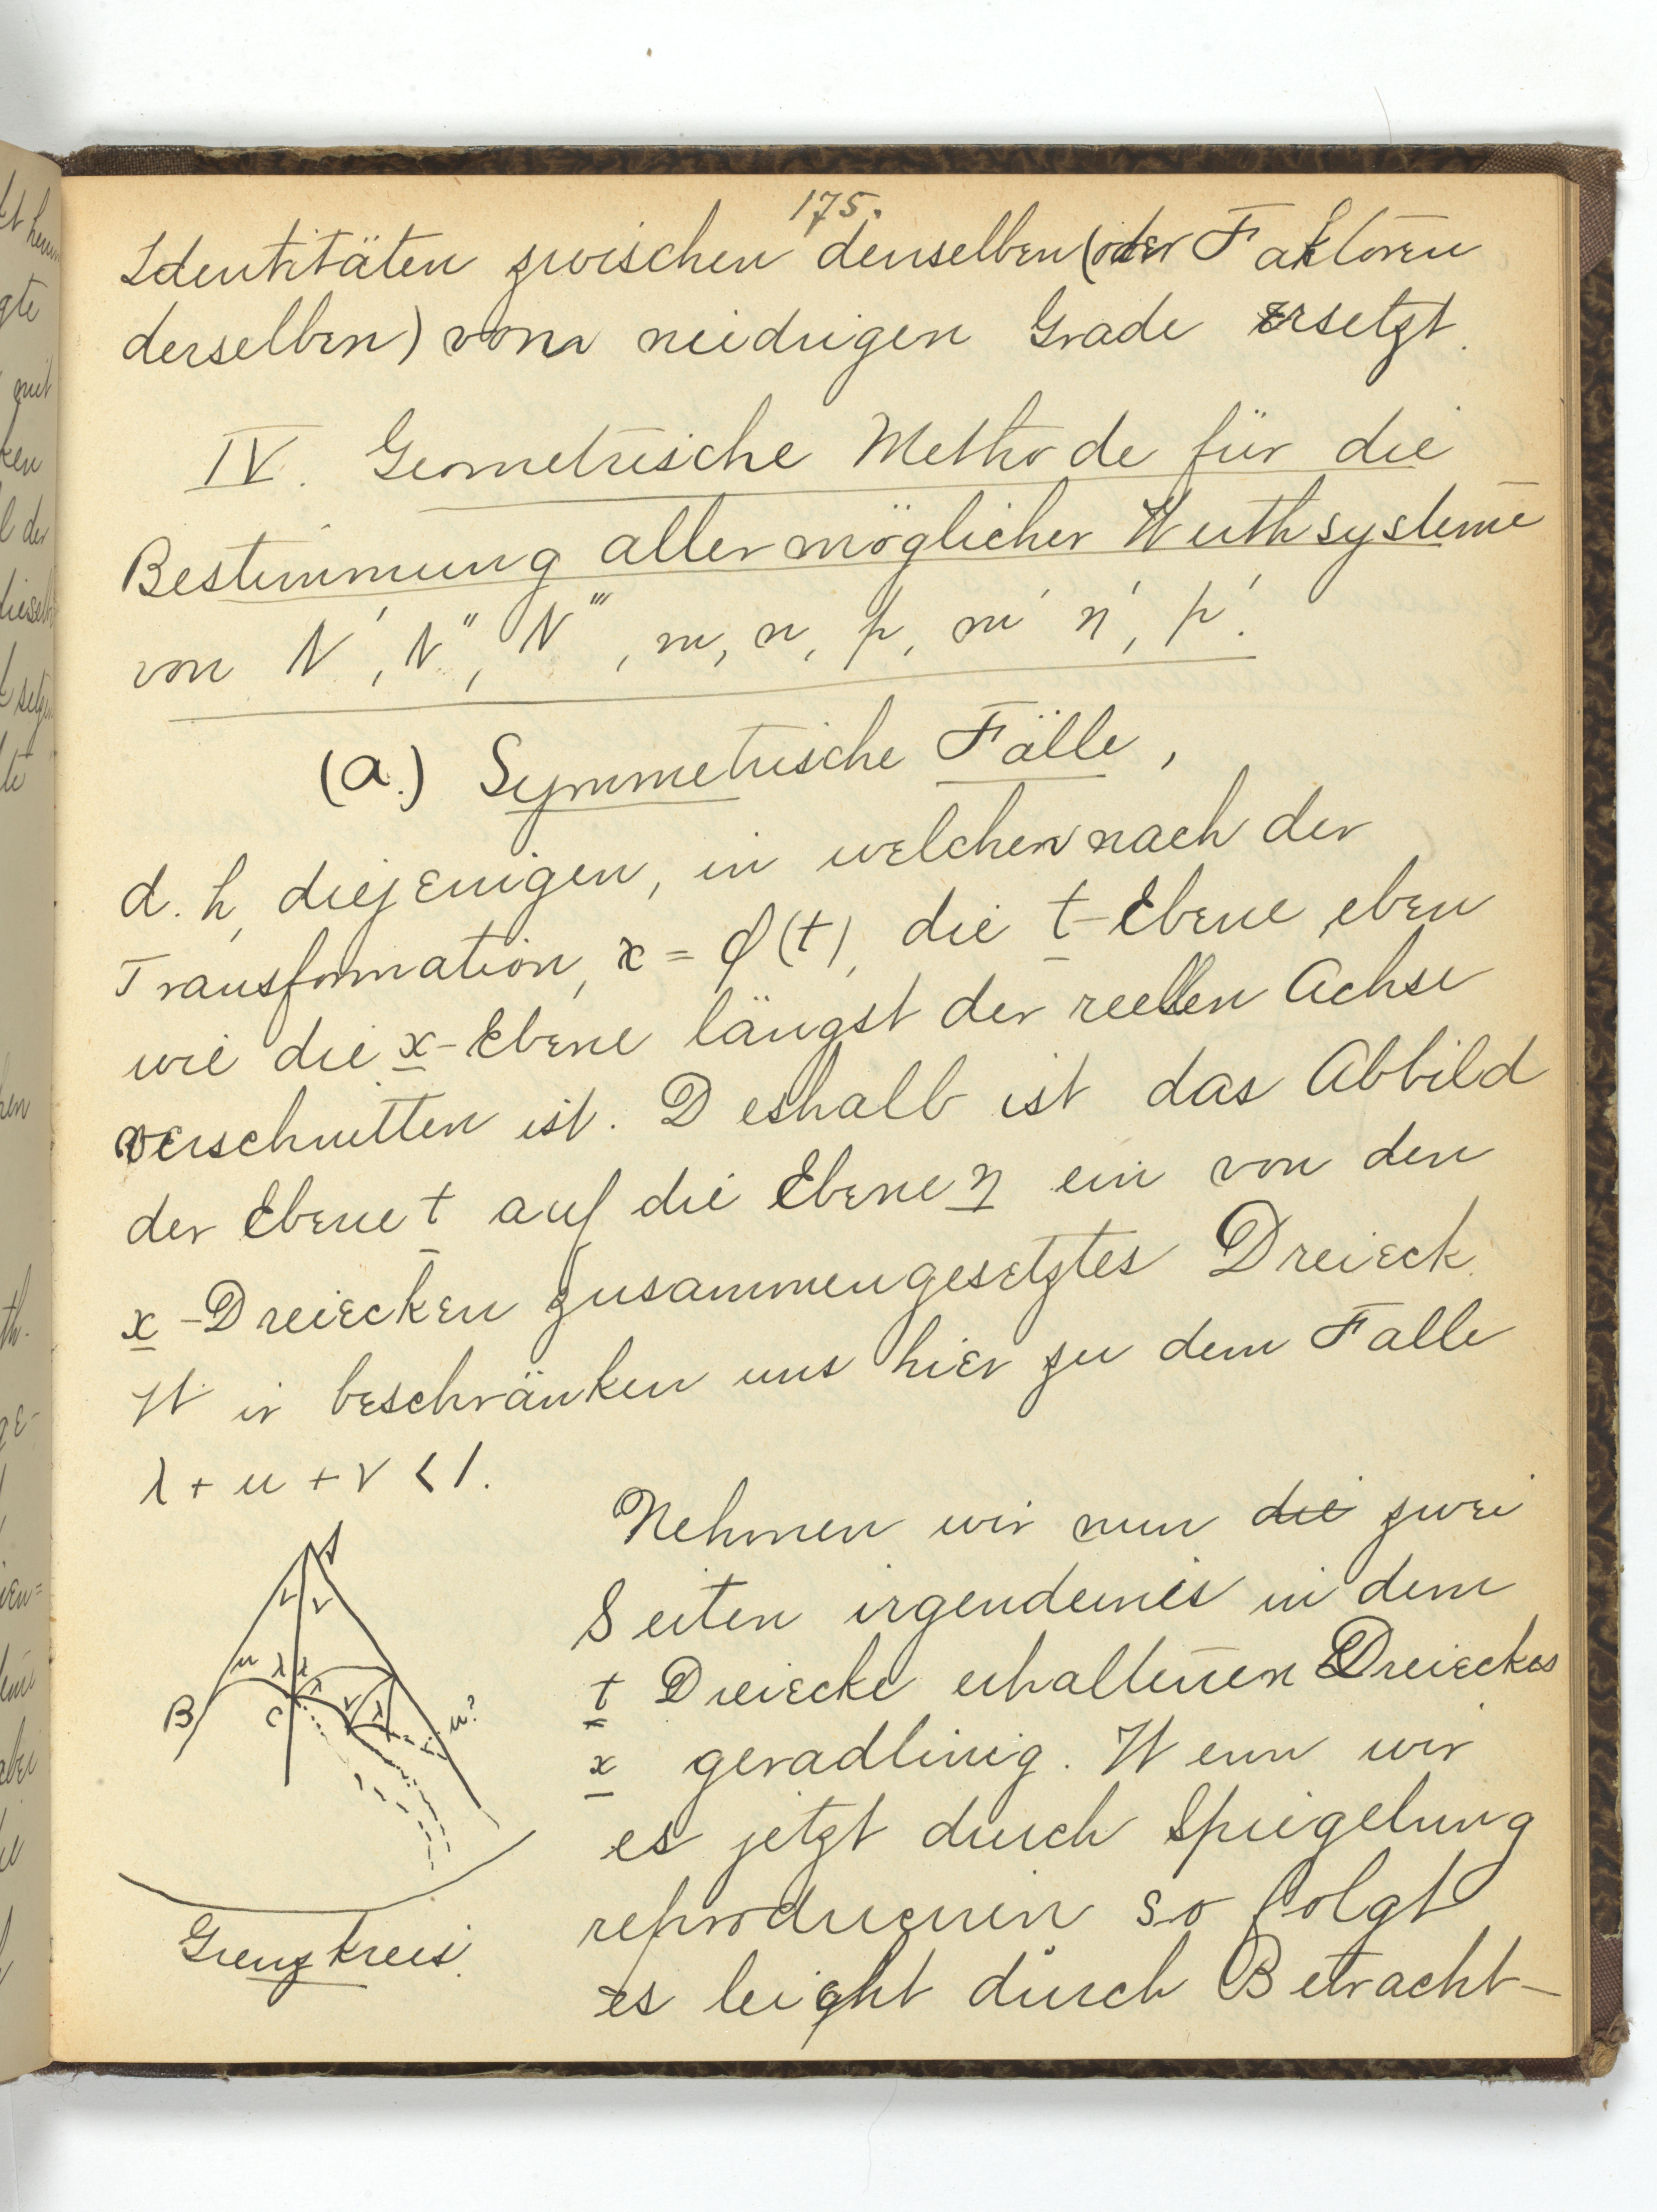 175.
Identitäten zwischen denselben (oder Faktoren
derselben) vom neidrigen Grade ersetzt.
IV. Geometrische Methode für die
Bestimmung aller möglicher Werthsysteme
von N', N'', N''', m, n, p, m' n', p'.
(a.) Symmetrische Fälle,
d. h, diejenigen, in welchen nach der
Transformation, x = φ(t), die t-Ebene eben
wie die x-Ebene längst der reellen Achse
verschnitten ist. Deshalb ist das Abbild
der Ebene t auf die Ebene η ein von den
x-Dreiecken zusammengesetztes Dreieck.
Wir beschränken uns hier zu dem Falle
λ + μ + ν < 1.
Nehmen wir nun die zwei
Seiten irgendeines in dem
t Dreiecke erhaltenen Dreieckes
x geradlinig. Wenn wir
es jetzt durch Spiegelung
reproducieren so folgt
es leicht durch Betracht-
A
ν ν
μ λ λ
λ ν λ μ?
B C
Grenzkreis.